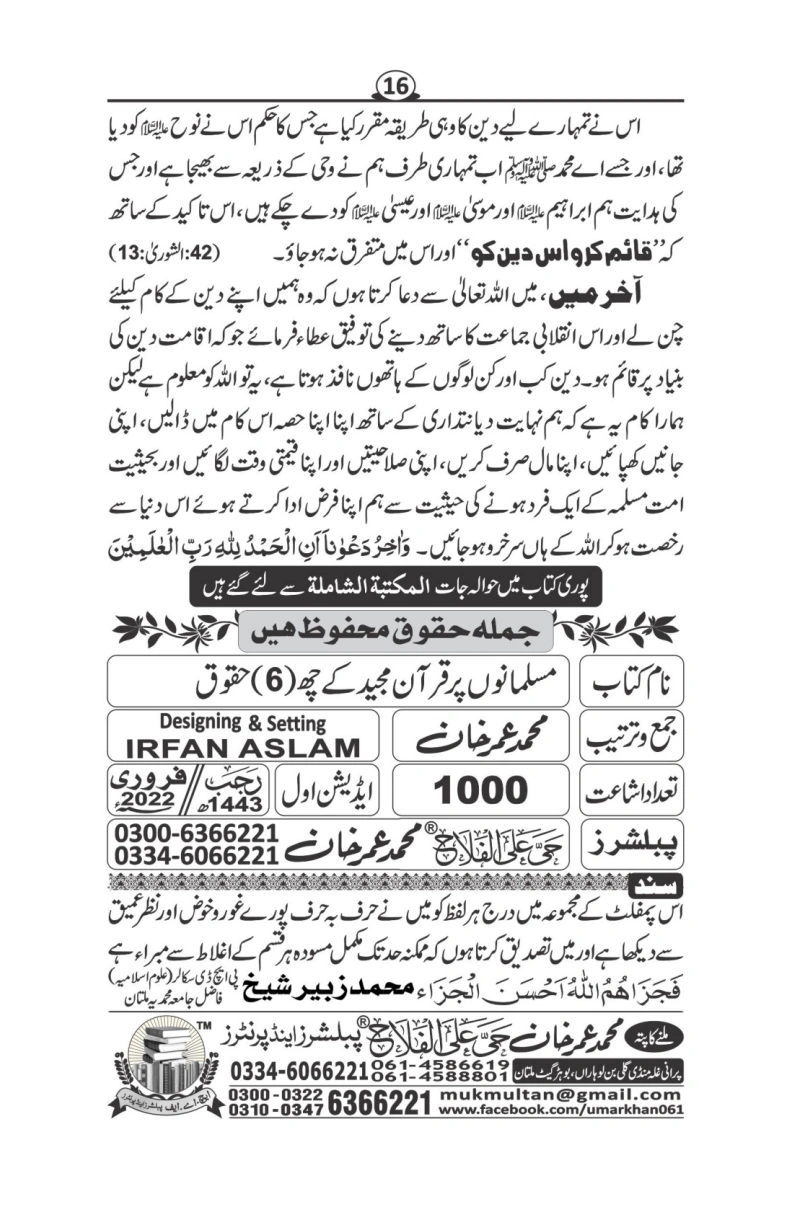 16
اس نے تمہارے لیے دین کا وہی طریقہ مقرر کیا ہے جس کا حکم اس نے نوح علیہ السلام کو دیا
تھا، اور جسے اے محمد صلی اللہ علیہ وسلم اب تمہاری طرف ہم نے وحی کے ذریعہ سے بھیجا ہے اور جس
کی ہدایت ہم ابراہیم علیہ السلام اور موسیٰ علیہ السلام اور عیسیٰ علیہ السلام کو دے چکے ہیں، اس تاکید کے ساتھ
کہ ”قائم کرو اس دین کو“ اور اس میں متفرق نہ ہو جاؤ۔ (42:الشوریٰ:13)
آخر میں، میں اللہ تعالیٰ سے دعا کرتا ہوں کہ وہ ہمیں اپنے دین کے کام کیلئے
چن لے اور اس انقلابی جماعت کا ساتھ دینے کی توفیق عطاء فرمائے جو کہ اقامت دین کی
بنیاد پر قائم ہو۔ دین کب اور کن لوگوں کے ہاتھوں نافذ ہوتا ہے، یہ تو اللہ کو معلوم ہے لیکن
ہمارا کام یہ ہے کہ ہم نہایت دیانتداری کے ساتھ اپنا اپنا حصہ اس کام میں ڈالیں، اپنی
جانیں کھپائیں، اپنا مال صرف کریں، اپنی صلاحیتیں اور اپنا قیمتی وقت لگائیں اور بحیثیت
امت مسلمہ کے ایک فرد ہونے کی حیثیت سے ہم اپنا فرض ادا کرتے ہوئے اس دنیا سے
رخصت ہو کر اللہ کے ہاں سرخرو ہو جائیں۔ وَاٰخِرُ دَعْوٰنَا اَنِ الْحَمْدُ لِلّٰهِ رَبِّ الْعٰلَمِیْنَ
پوری کتاب میں حوالہ جات المكتبة الشاملة سے لئے گئے ہیں
جملہ حقوق محفوظ ہیں
نام کتاب مسلمانوں پر قرآن مجید کے چھ (6) حقوق
جمع و ترتیب محمد عمر خان Designing & Setting
IRFAN ASLAM
تعداد اشاعت 1000 ایڈیشن اول رجب 1443ھ // فروری 2022ء
پبلشرز حَیَّ عَلَی الْفَلَاحْ® محمد عمر خان 0300-6366221
0334-6066221
سند
اس پمفلٹ کے مجموعہ میں درج ہر لفظ کو میں نے حرف بہ حرف پورے غور و خوض اور نظر عمیق
سے دیکھا ہے اور میں تصدیق کرتا ہوں کہ ممکنہ حد تک مکمل مسودہ ہر قسم کے اغلاط سے مبراء ہے
فَجَزَاهُمُ اللّٰهُ اَحْسَنَ الْجَزَاء محمد زبیر شیخ پی ایچ ڈی سکالر (علوم اسلامیہ)
فاضل جامعہ محمدیہ ملتان
ملنے کا پتہ محمد عمر خان حَیَّ عَلَی الْفَلَاحْ® پبلشرز اینڈ پرنٹرز TM
پرانی غلہ منڈی گلی بن لوہاراں، بوہڑ گیٹ ملتان 061-4586619
061-4588801 0334-6066221
0300 - 0322
0310 - 0347 6366221
mukmultan@gmail.com
www.facebook.com/umarkhan061
ایچ۔اے۔ایف پبلشرز اینڈ پرنٹرز